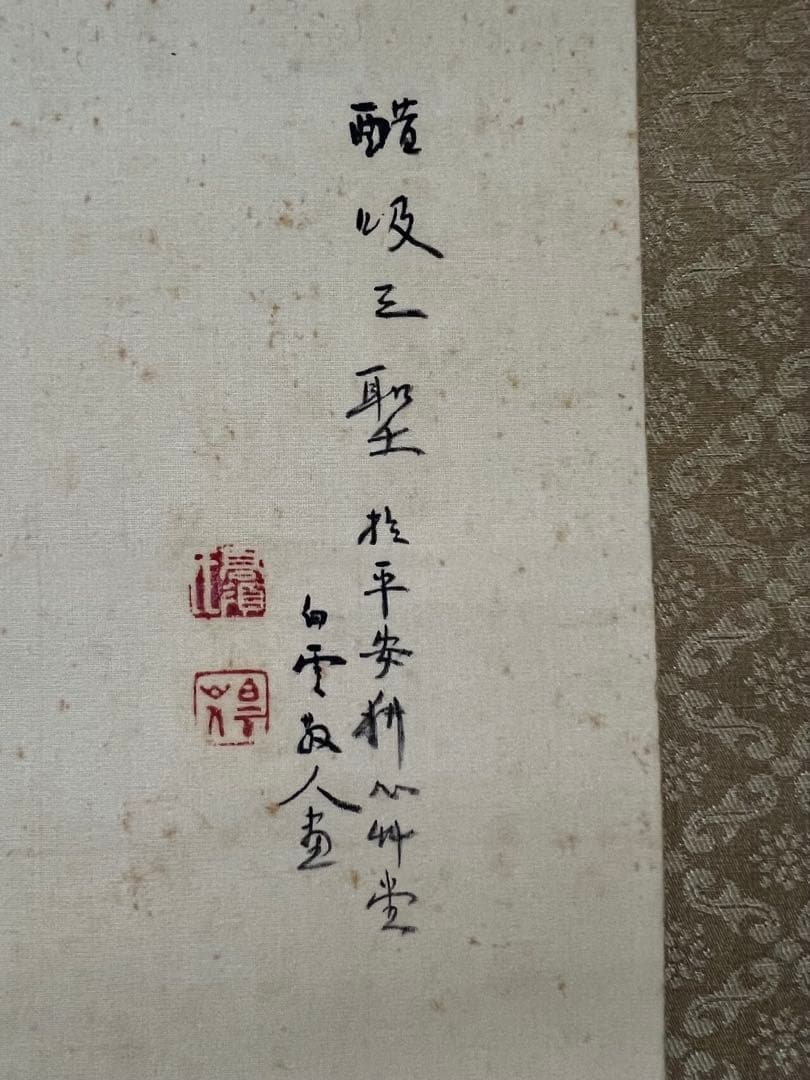 醋吸三聖 於平安耕心艸堂
白雲散人画